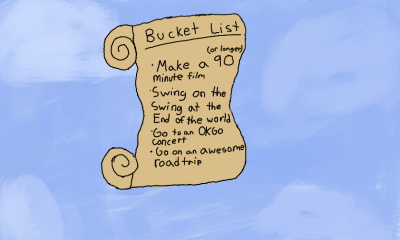 Bucket List
(or longer)
· Make a 90
minute film
· Swing on the
Swing at the
End of the world
· Go to an OKGO
concert
· Go on an awesome
road trip